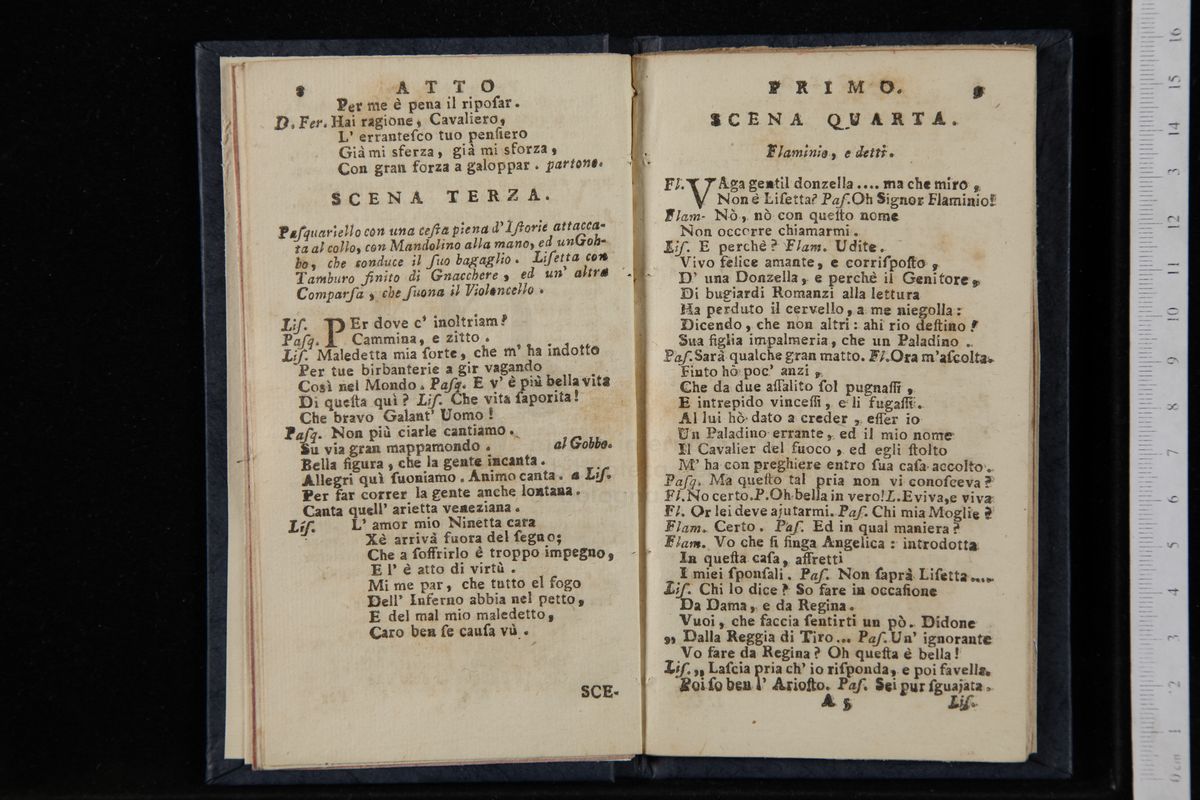 8 ATTO
Per me è pena il ripoſar.
D. Fer. Hai ragione, Cavaliero,
L' erranteſco tuo penſiero
Già mi sferza, già mi sforza,
Con gran forza a galoppar. partono.
SCENA TERZA.
Paſquariello con una ceſta piena d'Iſtorie attacca-
ta al collo, con Mandolino alla mano, ed un Gob-
bo, che conduce il ſuo bagaglio. Liſetta con
Tamburo finito di Gnacchere, ed un' altra
Comparſa, che ſuona il Violoncello.
Liſ. PEr dove c' inoltriam?
Paſq. Cammina, e zitto.
Liſ. Maledetta mia ſorte, che m' ha indotto
Per tue birbanterie a gir vagando
Così nel Mondo. Paſq. E v' è più bella vita
Di queſta quì? Liſ. Che vita ſaporita!
Che bravo Galant' Uomo!
Paſq. Non più ciarle cantiamo.
Su via gran mappamondo. al Gobbo.
Bella figura, che la gente incanta.
Allegri quì ſuoniamo. Animo canta. a Liſ.
Per far correr la gente anche lontana.
Canta quell' arietta veneziana.
Liſ. L' amor mio Ninetta cara
Xè arrivà fuora del ſegno;
Che a ſoffrirlo è troppo impegno,
E l' è atto di virtù.
Mi me par, che tutto el fogo
Dell' Inferno abbia nel petto,
E del mal mio maledetto,
Caro ben ſe cauſa vù.
SCE-
PRIMO. 9
SCENA QUARTA.
Flaminio, e detti.
Fl. VAga gentil donzella .... ma che miro,
Non è Liſetta? Paſ. Oh Signor Flaminio!
Flam- Nò, nò con queſto nome
Non occorre chiamarmi.
Liſ. E perchè? Flam. Udite.
Vivo felice amante, e corriſpoſto,
D' una Donzella, e perchè il Genitore,
Di bugiardi Romanzi alla lettura
Ha perduto il cervello, a me niegolla:
Dicendo, che non altri: ahi rio deſtino!
Sua figlia impalmeria, che un Paladino.
Paſ. Sarà qualche gran matto. Fl. Ora m'aſcolta.
Finto hò poc' anzi,
Che da due aſſalito ſol pugnaſſi,
E intrepido vinceſſi, e li fugaſſi.
Al lui hò dato a creder, eſſer io
Un Paladino errante, ed il mio nome
Il Cavalier del fuoco, ed egli ſtolto
M' ha con preghiere entro ſua caſa accolto.
Paſq. Ma queſto tal pria non vi conoſceva?
Fl. No certo. P. Oh bella in vero! L. Eviva, e viva
Fl. Or lei deve ajutarmi. Paſ. Chi mia Moglie?
Flam. Certo. Paſ. Ed in qual maniera?
Flam. Vo che ſi finga Angelica: introdotta
In queſta caſa, affretti
I miei ſponſali. Paſ. Non ſaprà Liſetta....
Liſ. Chi lo dice? So fare in occaſione
Da Dama, e da Regina.
Vuoi, che faccia ſentirti un pò. Didone
„ Dalla Reggia di Tiro... Paſ. Un' ignorante
Vo fare da Regina? Oh queſta è bella!
Liſ. „ Laſcia pria ch' io riſponda, e poi favella.
Poi ſo ben l' Arioſto. Paſ. Sei pur ſguajata.
A 5 Liſ.